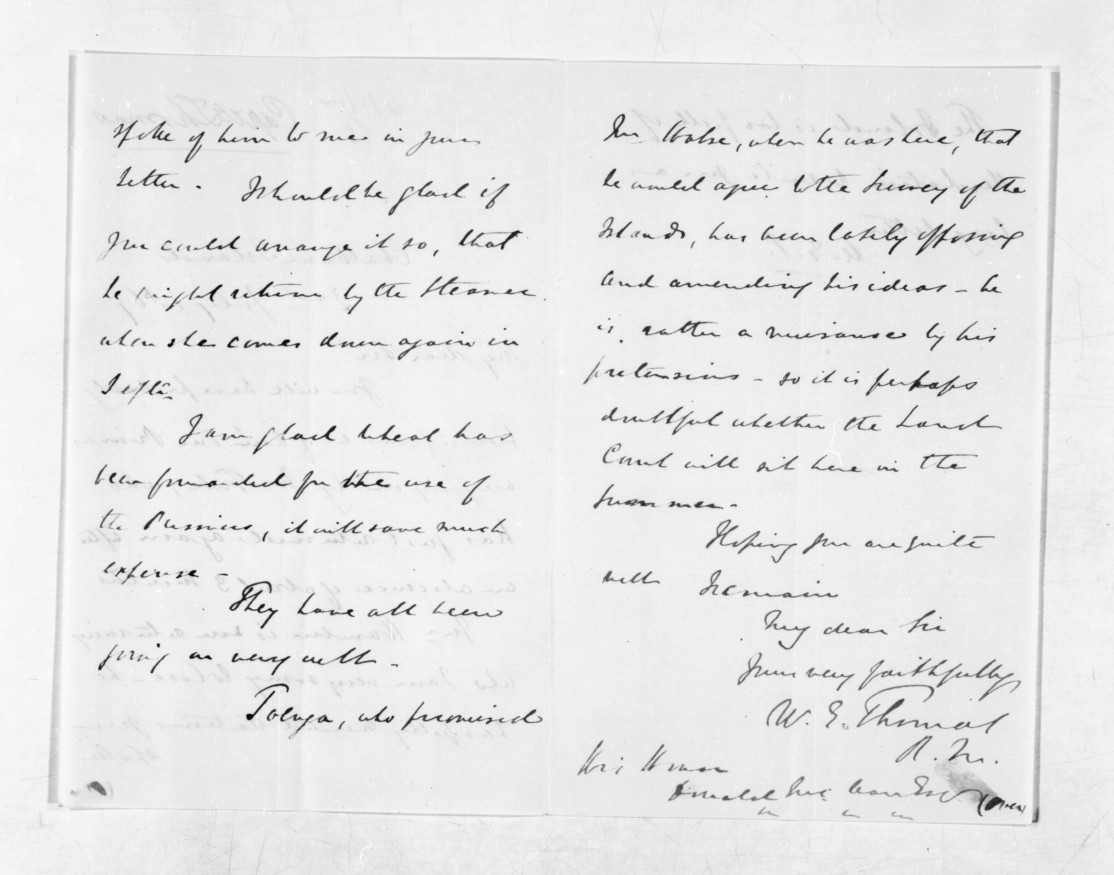 spoke of him to me in your
letter. I should be glad if
you could arrange it so, that
he might return by the Steamer
when she comes down again in
Septr.
I am glad wheat has
been forwarded for the use of
the Prisoners, it will save much
expense -
They have all been
going on very well -
Toenga, who promised
Mr. Halse, when he was here, that
he would agree to the Survey of the
Islands, has been lately opposing
and amending his ideas - he
is rather a nuisance by his
pretensions - so it is perhaps
doubtful whether the Land
Court will sit here in the
summer.
Hoping you are quite
well I remain
My dear Sir
Yours very faithfully
W. E. Thomas
R. M.
His Honor
Donald McLean Esqr
(over)